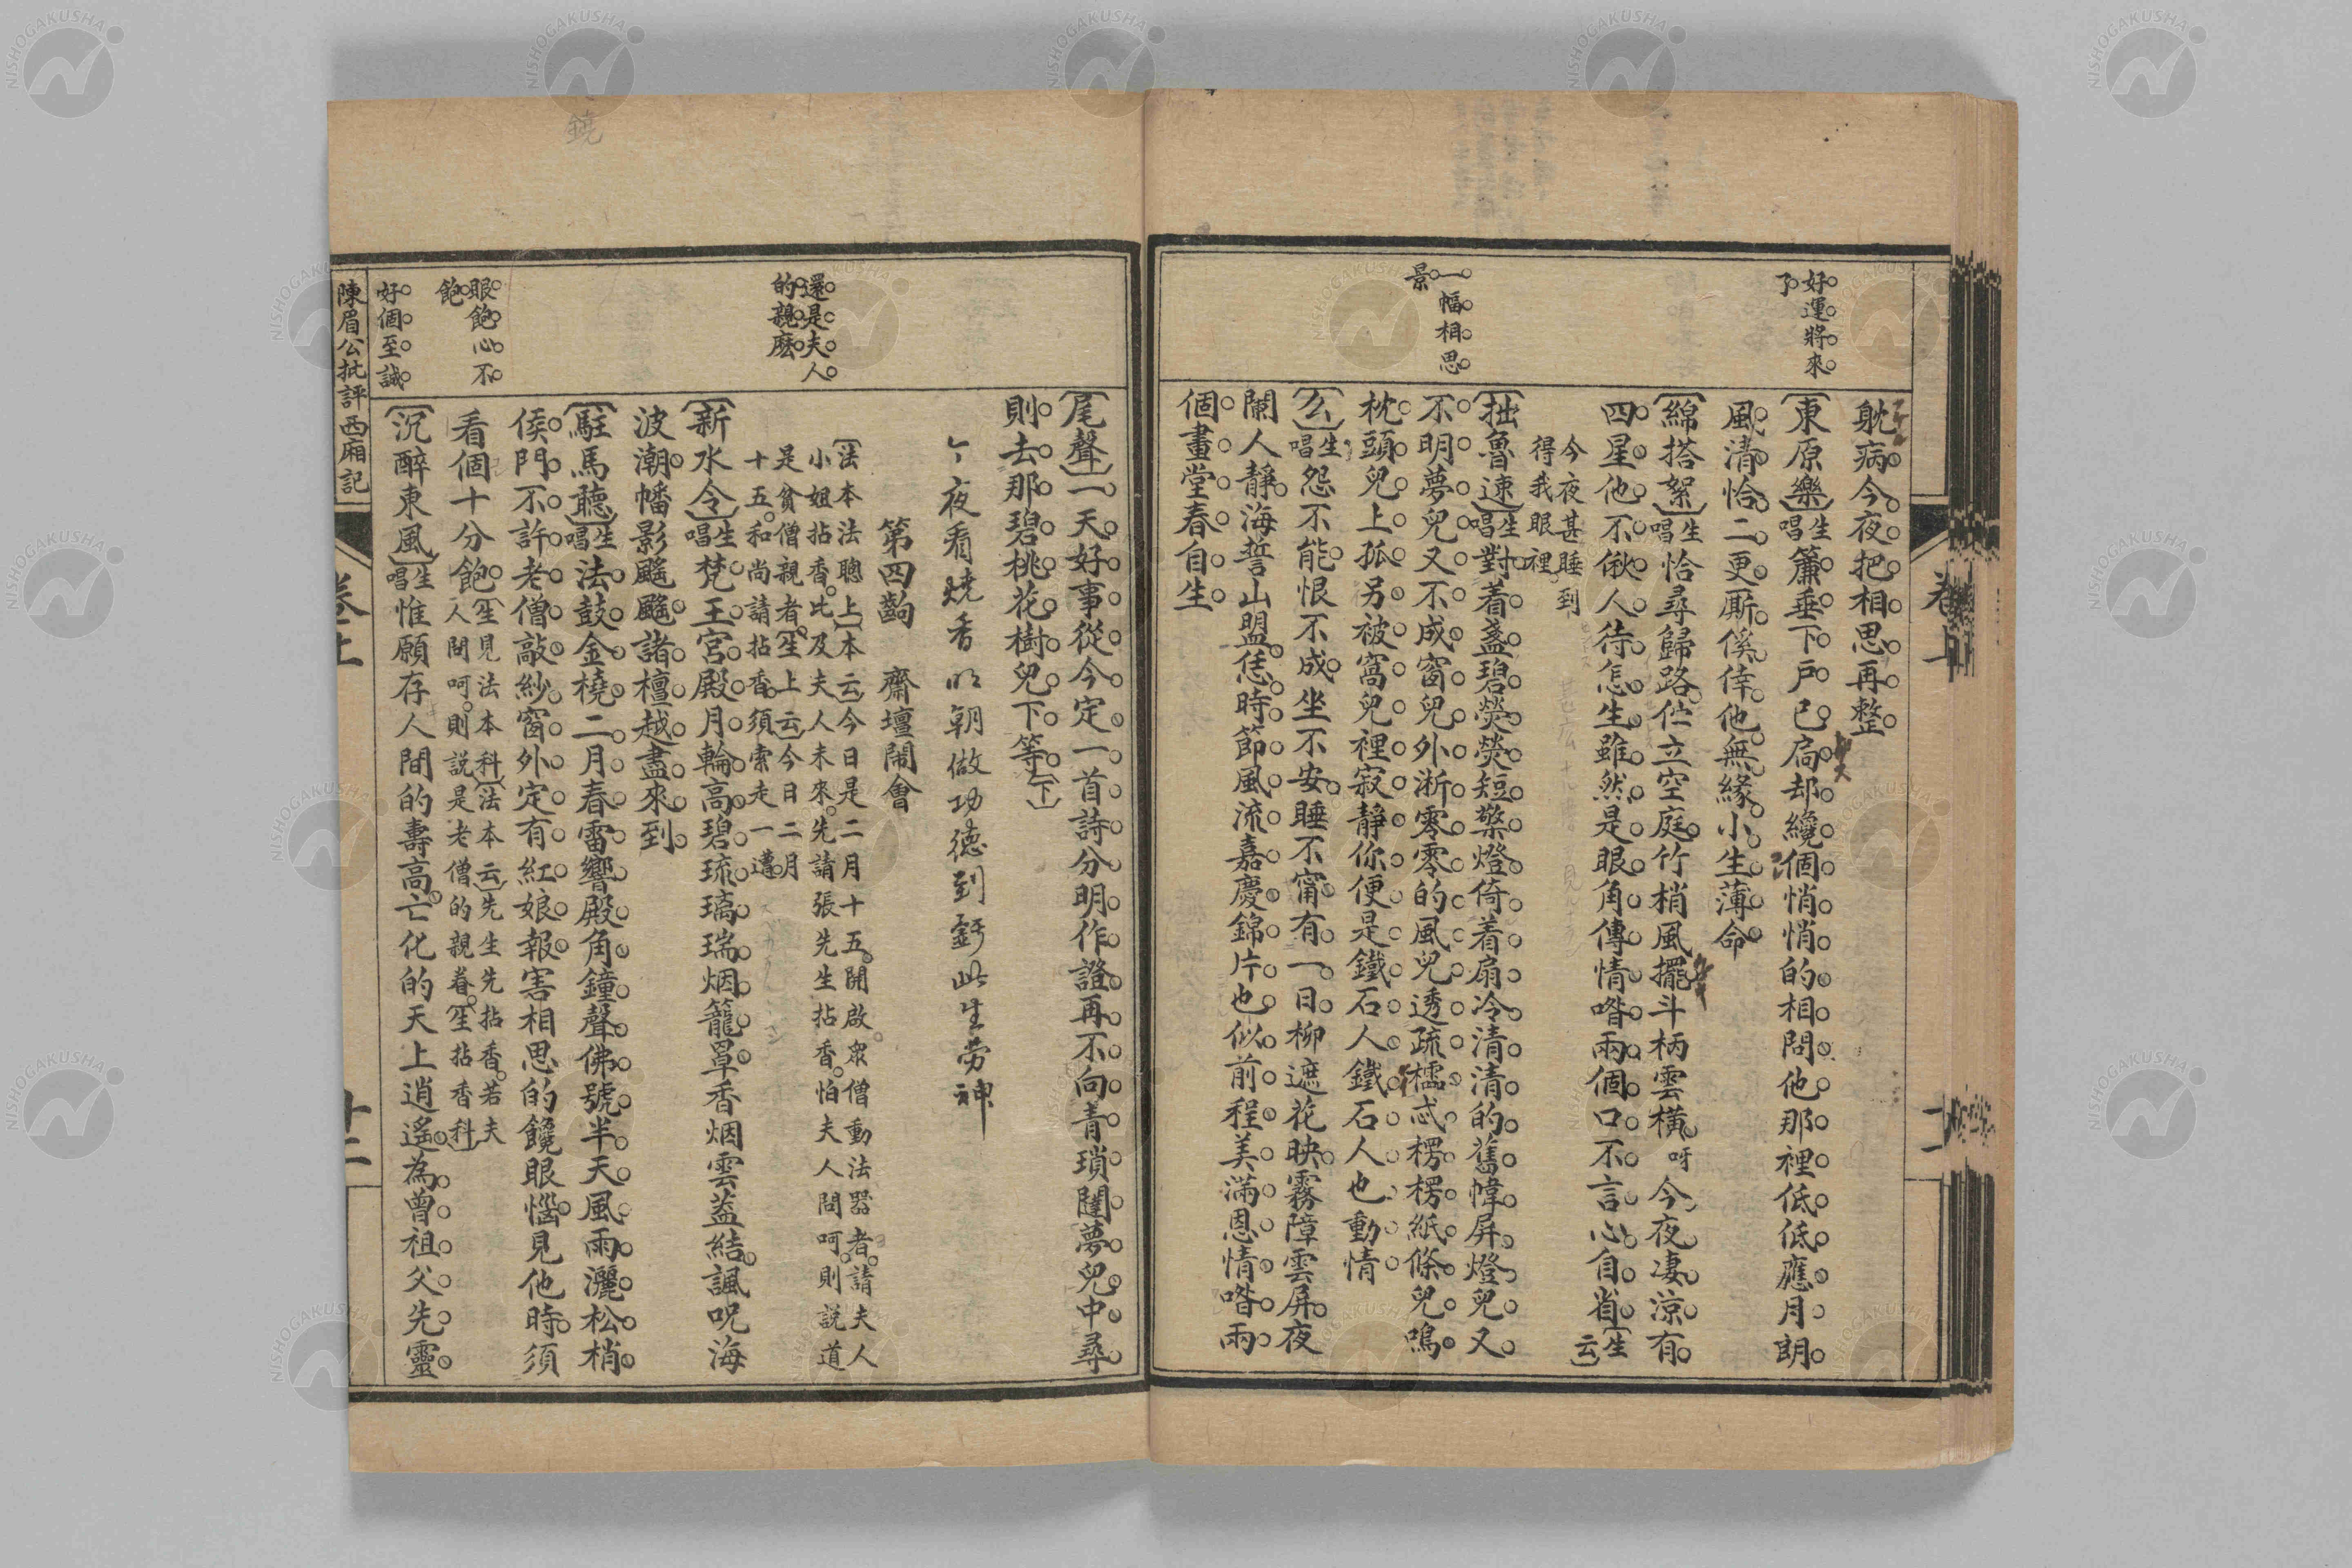 好運將來
了
一幅相思
景
躭病今夜把相思再整
【東原樂】生唱簾垂下戶已扃却纔個悄悄的相問他那裡低低應月朗
風清恰二更厮傒倖他無緣小生薄命
【綿搭絮】生唱恰尋歸路伫立空庭竹梢風擺斗柄雲橫呀今夜凄涼有
四星他不偢人待怎生雖然是眼角傳情喒兩個口不言心自省【生云】
今夜甚睡到
得我眼裡
【拙魯速】生唱對着盞碧熒熒短檠燈倚着扇冷清清的舊幃屏燈兒又
不明夢兒又不成窗兒外淅零零的風兒透疏櫺忒楞楞紙條兒鳴
枕頭兒上孤另被窩兒裡寂靜你便是鐵石人鐵石人也動情
【幺】生唱怨不能恨不成坐不安睡不甯有一日柳遮花映霧障雲屏夜
闌人靜海誓山盟恁時節風流嘉慶錦片也似前程美滿恩情喒兩
個畫堂春自生
卷十
十二
還是夫人
的親麽
眼飽心不
飽
好個至誠
【尾聲】一天好事從今定一首詩分明作證再不向青瑣闥夢兒中尋
則去那碧桃花樹兒下等【下】
今夜看燒香明朝做功德到處此生勞神
第四齣　齋壇鬧會
【法本法聰上】【本云】今日是二月十五開啟衆僧動法器者請夫人
小姐拈香比及夫人未來先請張先生拈香怕夫人問呵則説道
是貧僧親者【生上云】今日二月
十五和尚請拈香須索走一遭
【新水令】生唱梵王宮殿月輪高碧琉璃瑞烟籠罩香烟雲葢結諷呪海
波潮幡影飃飃諸檀越盡來到
【駐馬聽】生唱法鼓金橈二月春雷響殿角鐘聲佛號半天風雨灑松梢
侯門不許老僧敲紗窗外定有紅娘報害相思的饞眼惱見他時須
看個十分飽【生見法本科】【法本云】先生先拈香若夫
人問呵則説是老僧的親眷【生拈香科】
【沉醉東風】生唱惟願存人間的壽高亡化的天上逍遙為曾祖父先靈
陳眉公批評西廂記
卷上
十二
鐃